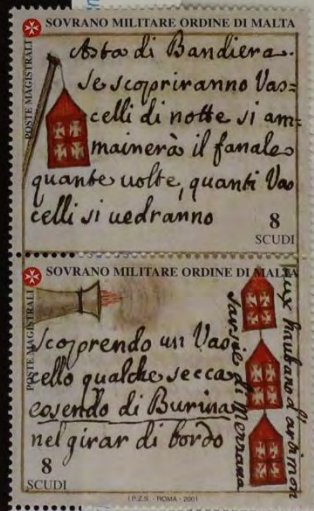 SOVRANO MILITARE ORDINE DI MALTA
POSTE MAGISTRALI
Asta di Bandiera.
se scopriranno Vas=
celli di notte si am=
mainerà il fanale
quante uolte, quanti Vas
celli si uedranno
8
SCUDI
SOVRANO MILITARE ORDINE DI MALTA
POSTE MAGISTRALI
scoprendo un Vas
cello qualche secca
essendo di Burina,
nel girar di bordo
8
SCUDI
sarsie di Mezzana
aux haubans d'artimon
I.P.Z.S. - ROMA - 2001